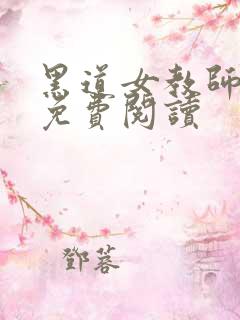 黑道女教師
免費閱讀
鄧蓉